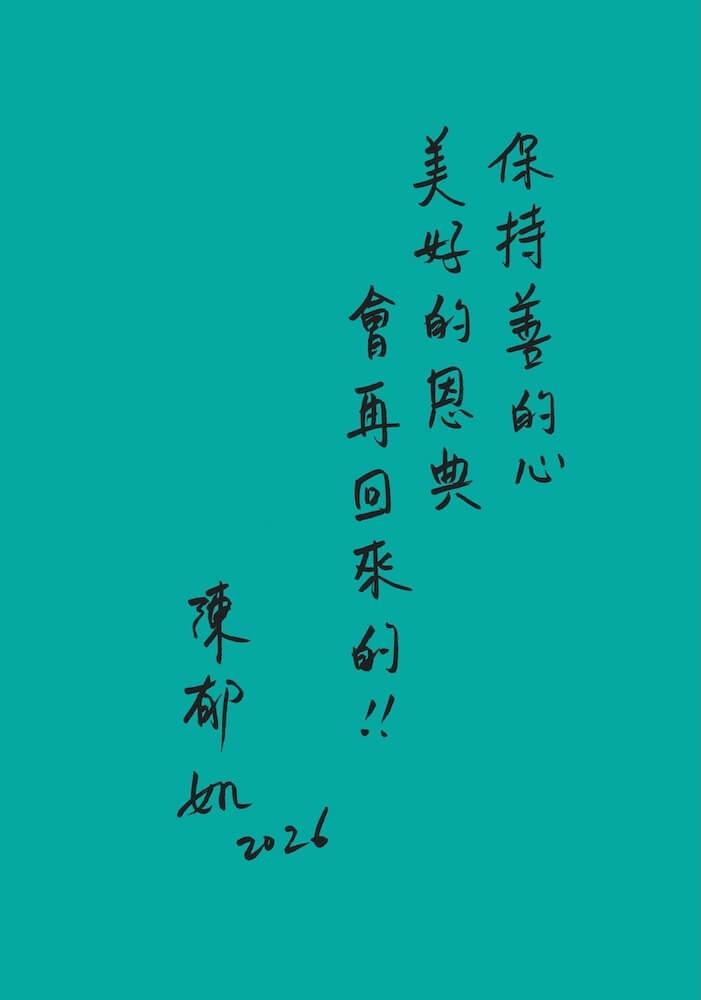 保持善的心
美好的恩典
會再回來的!!
陳郁如
2026